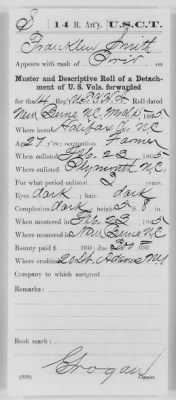 S | 14 H. Art'y. | U.S.C.T.
Franklin Smith
Appears with rank of Priv on
Muster and Descriptive Roll of a Detach-
ment of U. S. Vols. forwarded
for the 14 Reg't U.S.C.H.A. Roll dated
New Berne N.C. Mch 1, 1865
Where born Halifax Co. N.C.
Age 27 y'rs; occupation Farmer
When enlisted Feb. 23, 1865
Where enlisted Plymouth N.C.
For what period enlisted 3 years.
Eyes dark; hair dark
Complexion dark; height 5 ft. 8 in.
When mustered in Feb. 23, 1865
Where mustered in New Berne N.C.
Bounty paid $ 100; due $ 300 100
Where credited Adams
Company to which assigned
Remarks:
Book mark:
Grogan
(339) Copyist.